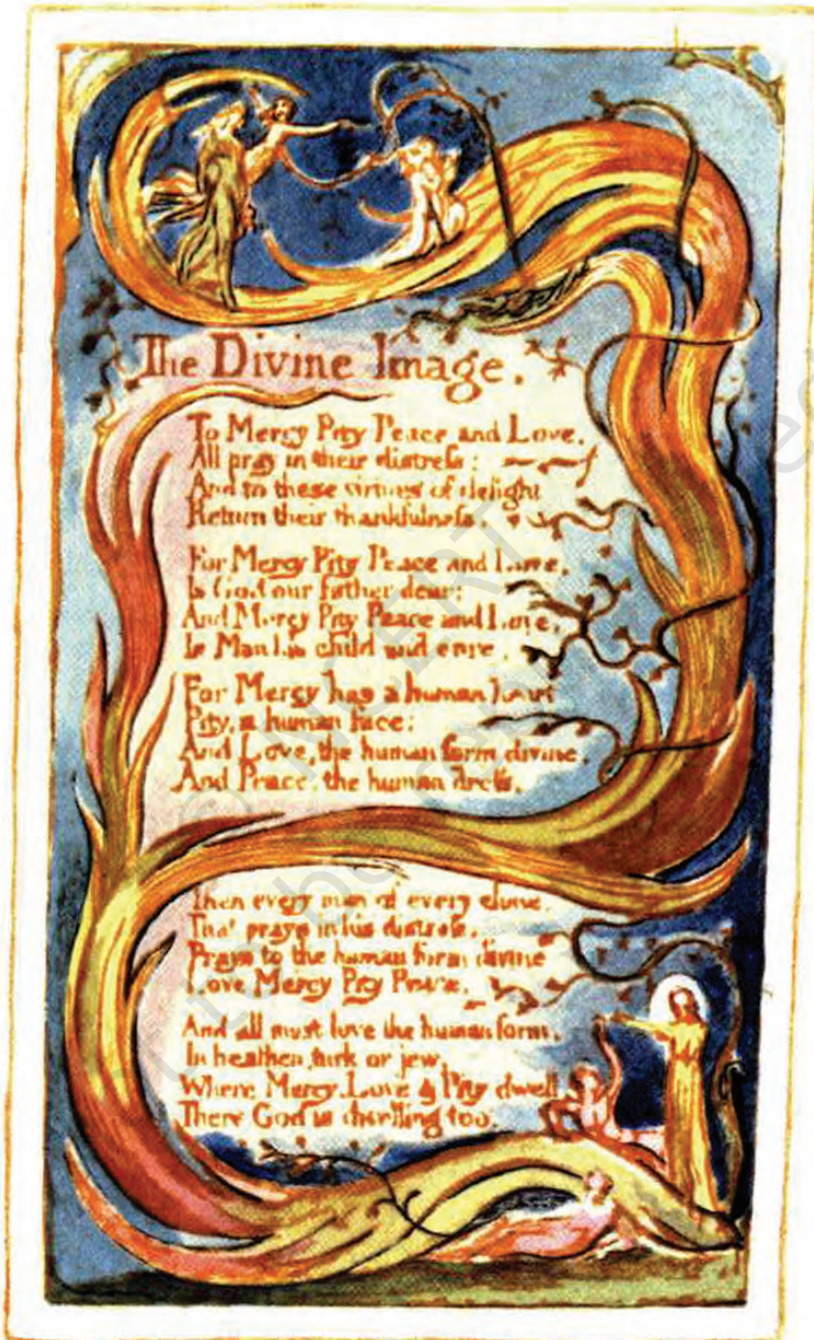 The Divine Image.
To Mercy Pity Peace and Love,
All pray in their distress:
And to these virtues of delight
Return their thankfulness.
For Mercy Pity Peace and Love,
Is God our father dear:
And Mercy Pity Peace and Love,
Is Man his child and care.
For Mercy has a human heart
Pity, a human face:
And Love, the human form divine,
And Peace, the human dress.
Then every man of every clime,
That prays in his distress,
Prays to the human form divine
Love Mercy Pity Peace.
And all must love the human form,
In heathen, turk or jew.
Where Mercy, Love & Pity dwell
There God is dwelling too.
© NCERT